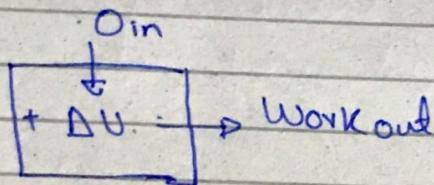 Qin
+ ΔU. → Work out